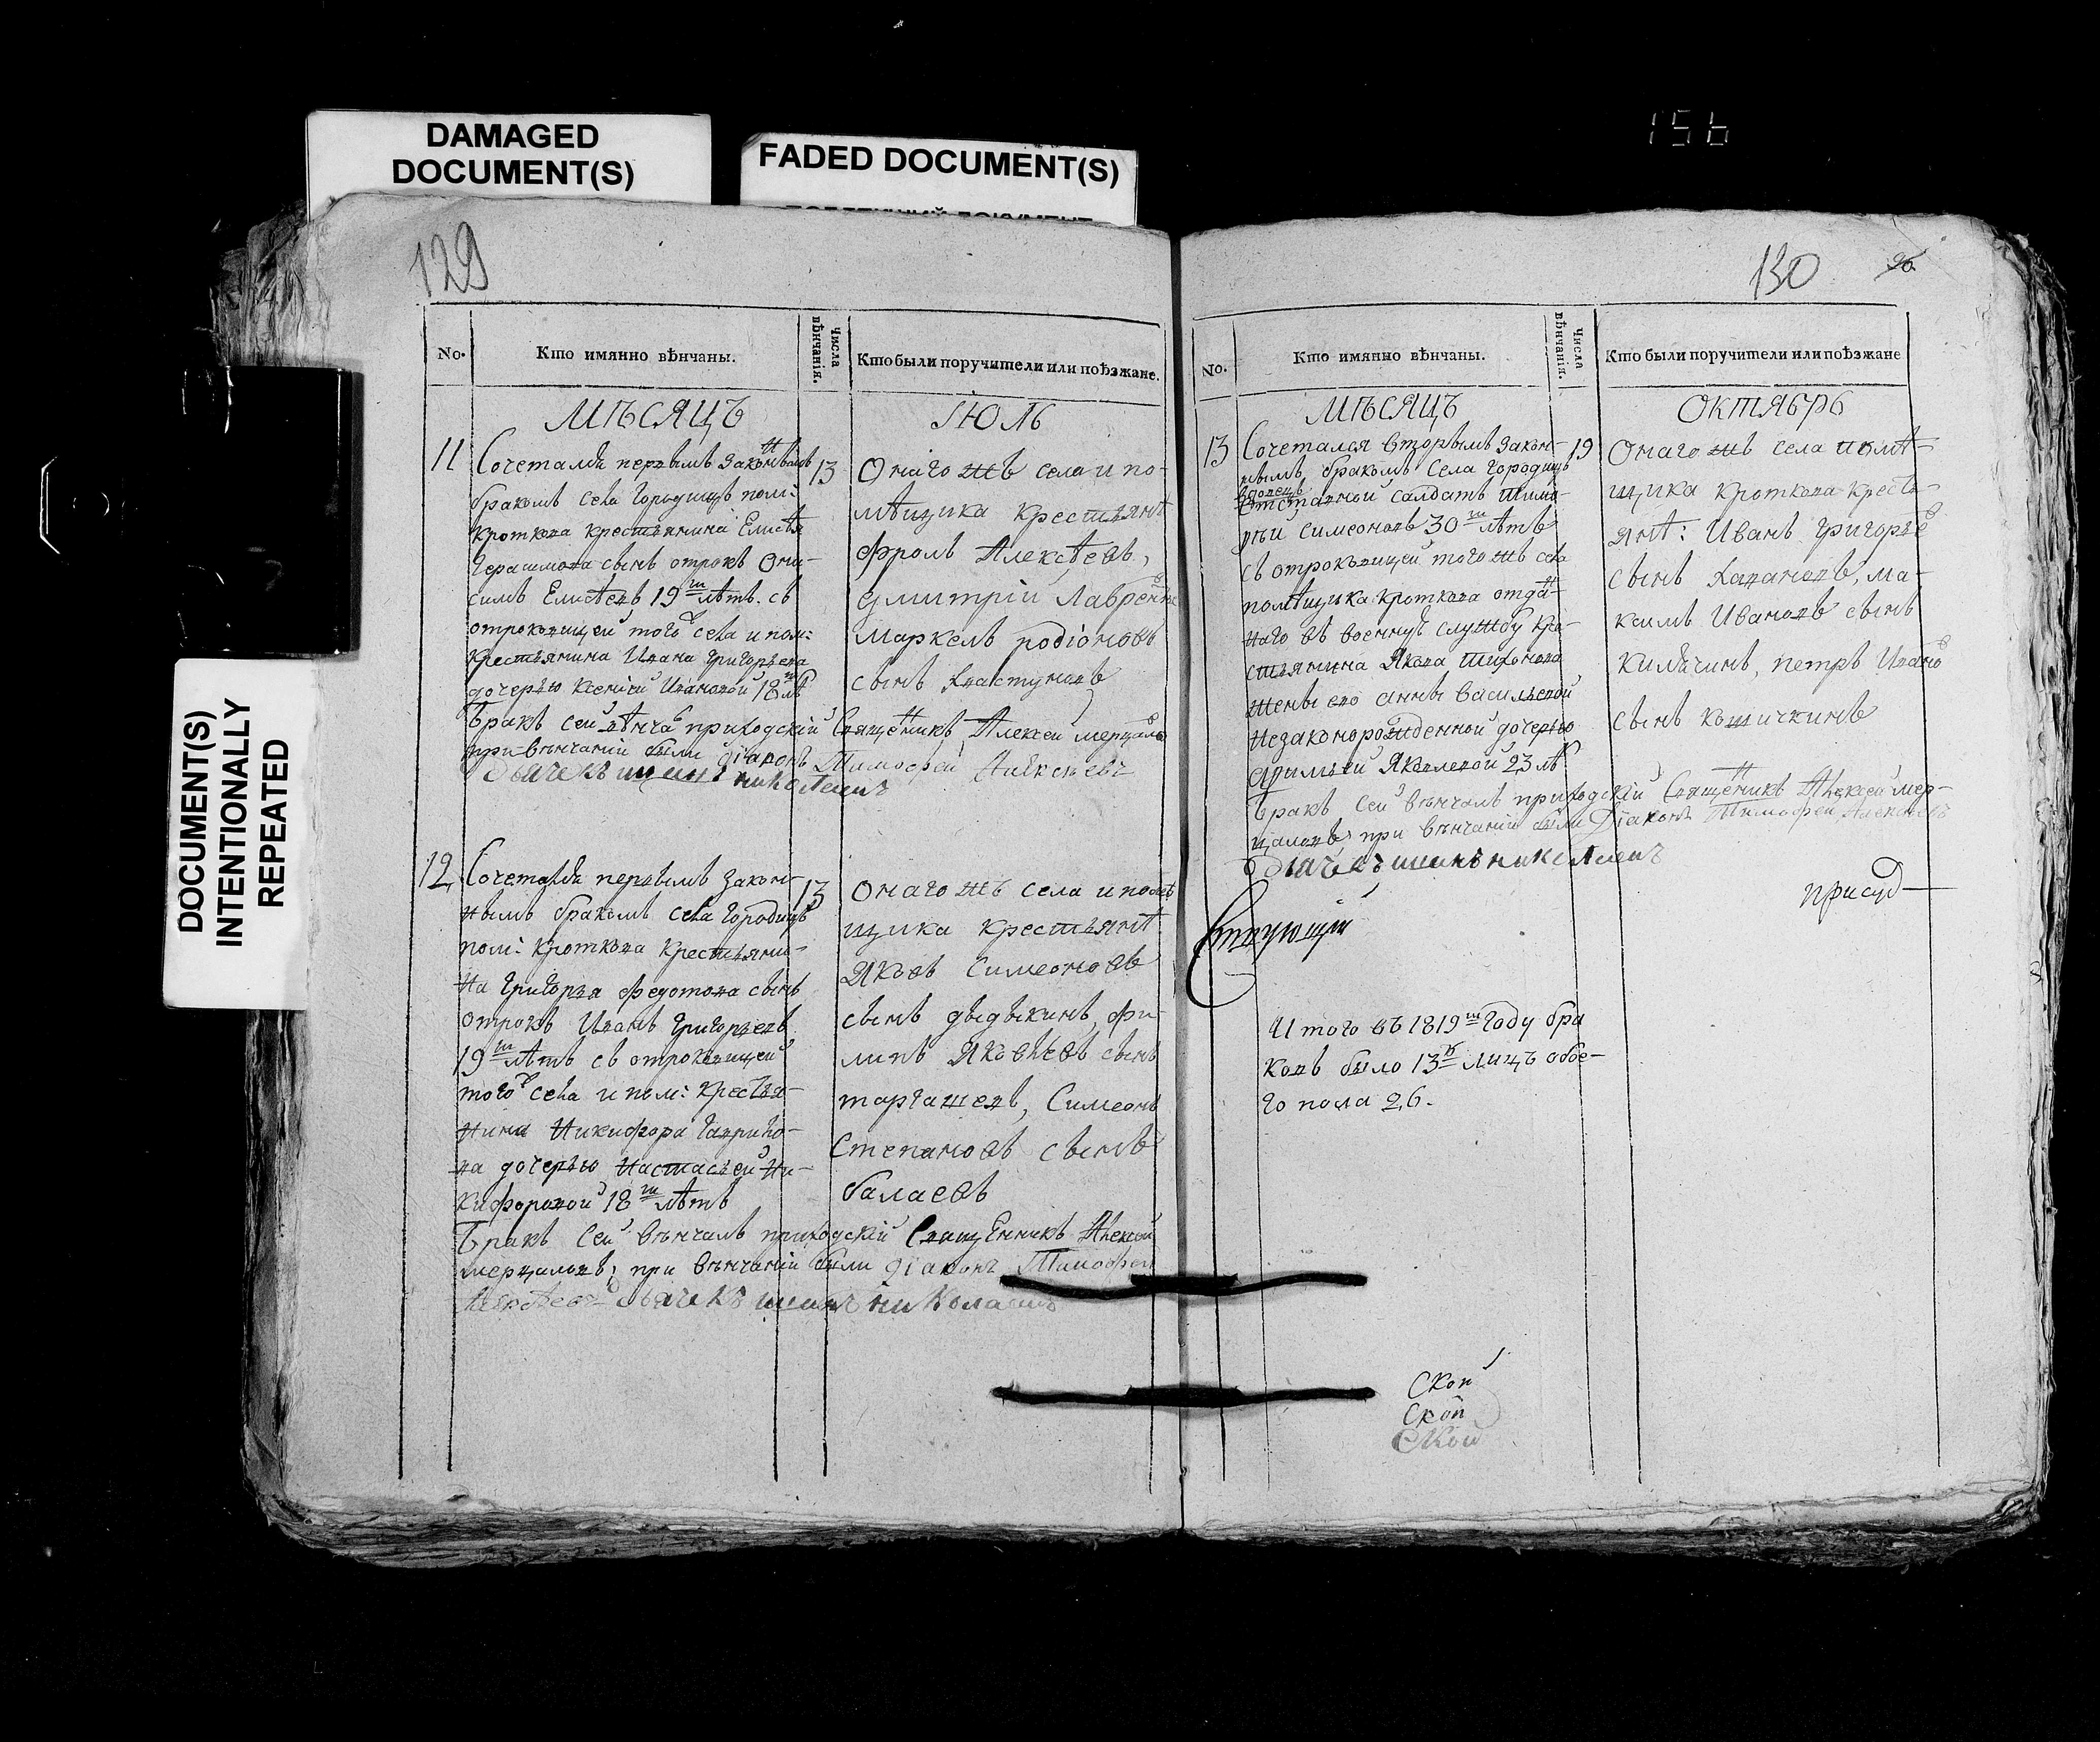 156
DAMAGED
DOCUMENT(S)
FADED DOCUMENT(S)
DOCUMENT(S)
INTENTIONALLY
REPEATED
129
No.
Кто имянно вѣнчаны.
Числа
вѣнчанія.
Кто были поручители или поѣзжане.
МѢСЯЦЪ
ІЮЛЬ
11
Сочетался первымъ законнымъ
бракомъ села Городищъ пом:
Кроткова крестьянина Елисѣя
Герасимова сынъ отрокъ Они-
симъ Елисѣевъ 19ти лѣтъ. съ
отроковицей того села и пом:
крестьянина Ивана Григорьева
дочерью Ксеніей Ивановой 18 лѣ
13
Онаго жъ села и по-
мѣщика крестьянѣ
Фролъ Алексѣевъ,
Дмитрій Лаврентье
Маркелъ Родіоновъ
сынъ Хвастуновъ
Бракъ сей вѣнча приходскій Священникъ Алексей Мерцалов
при вѣнчаніи были діаконъ Тимофей Алексѣевъ
дьячекъ Николаевъ
12
Сочетался первымъ закон-
нымъ бракомъ села Городищъ
пом: Кроткова крестьяни-
на Григорья Федотова сынъ
отрокъ Иванъ Григорьевъ
19ти лѣтъ съ отроковицей
того села и пом: крестья-
нина Никифора Гаврило-
ва дочерью Настасьей Ни-
кифоровой 18ти лѣтъ
13
Онаго жъ села и помѣ
щика крестьянѣ
Яковъ Симеоновъ
сынъ Дыдыкинъ, Фи-
липъ Яковлевъ сынъ
Торгашевъ, Симеонъ
Степановъ сынъ
Балаевъ
Бракъ сей вѣнчалъ приходскій Священникъ Алексей
Мерцаловъ; при вѣнчаніи были діаконъ Тимофей
Алексѣевъ дьячекъ Николаевъ
130
96
No.
Кто имянно вѣнчаны.
Числа
вѣнчанія.
Кто были поручители или поѣзжане
МѢСЯЦЪ
ОКТЯБРЬ
13
Сочетался вторымъ закон-
нымъ бракомъ села Городищъ
вдовецъ
отставной салдатъ Тимо-
фѣй Симеоновъ 30ти лѣтъ
съ отроковицей того жъ села
помѣщика Кроткова отдан-
наго въ военную службу кре-
стьянина Якова Тихонова
жены его Анны Васильевой
незаконорожденной дочерью
Яковлевой 23 лѣ
19
Онаго жъ села помѣ-
щика Кроткова кресть-
янѣ: Иванъ Григорьев
сынъ Канановъ, Ма-
ксимъ Ивановъ сынъ
Килячинъ, Петръ Иванов
сынъ Кошичкинъ
Бракъ сей вѣнчалъ приходскій Священникъ Алексей Мер-
цаловъ; при вѣнчаніи были Діаконъ Тимофей Алексѣевъ
дьячекъ Николаевъ
присуд
ствующій
Итого въ 1819м году бра
ковъ было 13ть лицъ обое-
го пола 26.
ской
ской
ской